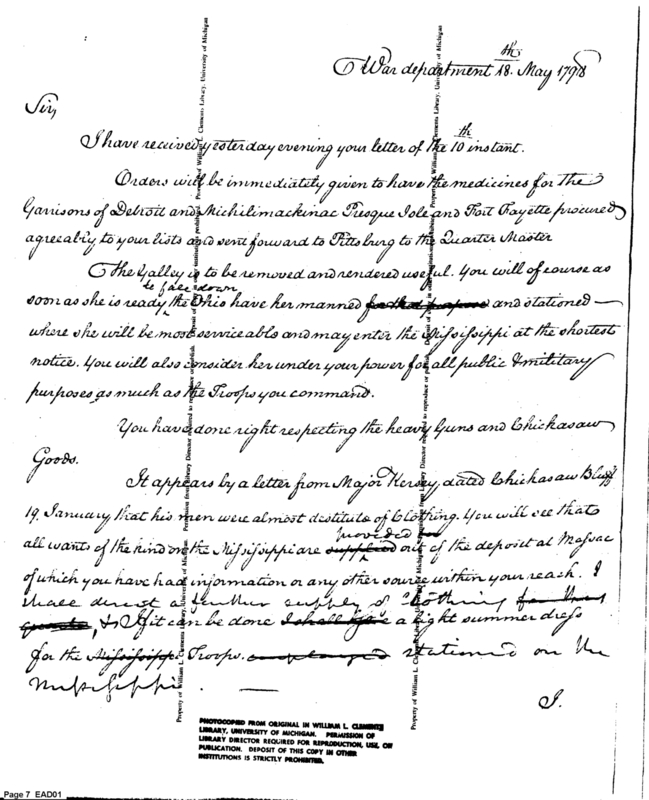 War department 18th. May 1798
Sir,
I have received yesterday evening your letter of the 10th instant.
Orders will be immediately given to have the medicines for the
Garrisons of Detroit and Michilimackinac Presque Isle and Fort Fayette procured
agreeably to your lists and sent forward to Pittsburg to the Quarter Master
The Galley is to be removed and rendered useful. You will of course as
to fall down
soon as she is ready the Ohio have her manned for that purpose and stationed —
where she will be most serviceable and may enter the Mississippi at the shortest
notice. You will also consider her under your power for all public & military
purposes as much as the Troops you command.
You have done right respecting the heavy Guns and Chickasaw
Goods.
It appears by a letter from Major Kersey, dated Chickasaw Bluff
19. January that his men were almost destitute of Clothing. You will see that
provided
all wants of the kind on the Mississippi are supplied out of the deposit at Massac
of which you have had information or any other source within your reach. I
shall direct a further supply of Clothing for this
, & If it can be done I shall a light summer dress
for the Mississippi Troops. stationed on the
Mississippi. —
I.
PHOTOCOPIED FROM ORIGINAL IN WILLIAM L. CLEMENTS
LIBRARY, UNIVERSITY OF MICHIGAN. PERMISSION OF
LIBRARY DIRECTOR REQUIRED FOR REPRODUCTION, USE, OR
PUBLICATION. DEPOSIT OF THIS COPY IN OTHER
INSTITUTIONS IS STRICTLY PROHIBITED.
Property of William L. Clements Library, University of Michigan
Page 7 EAD01